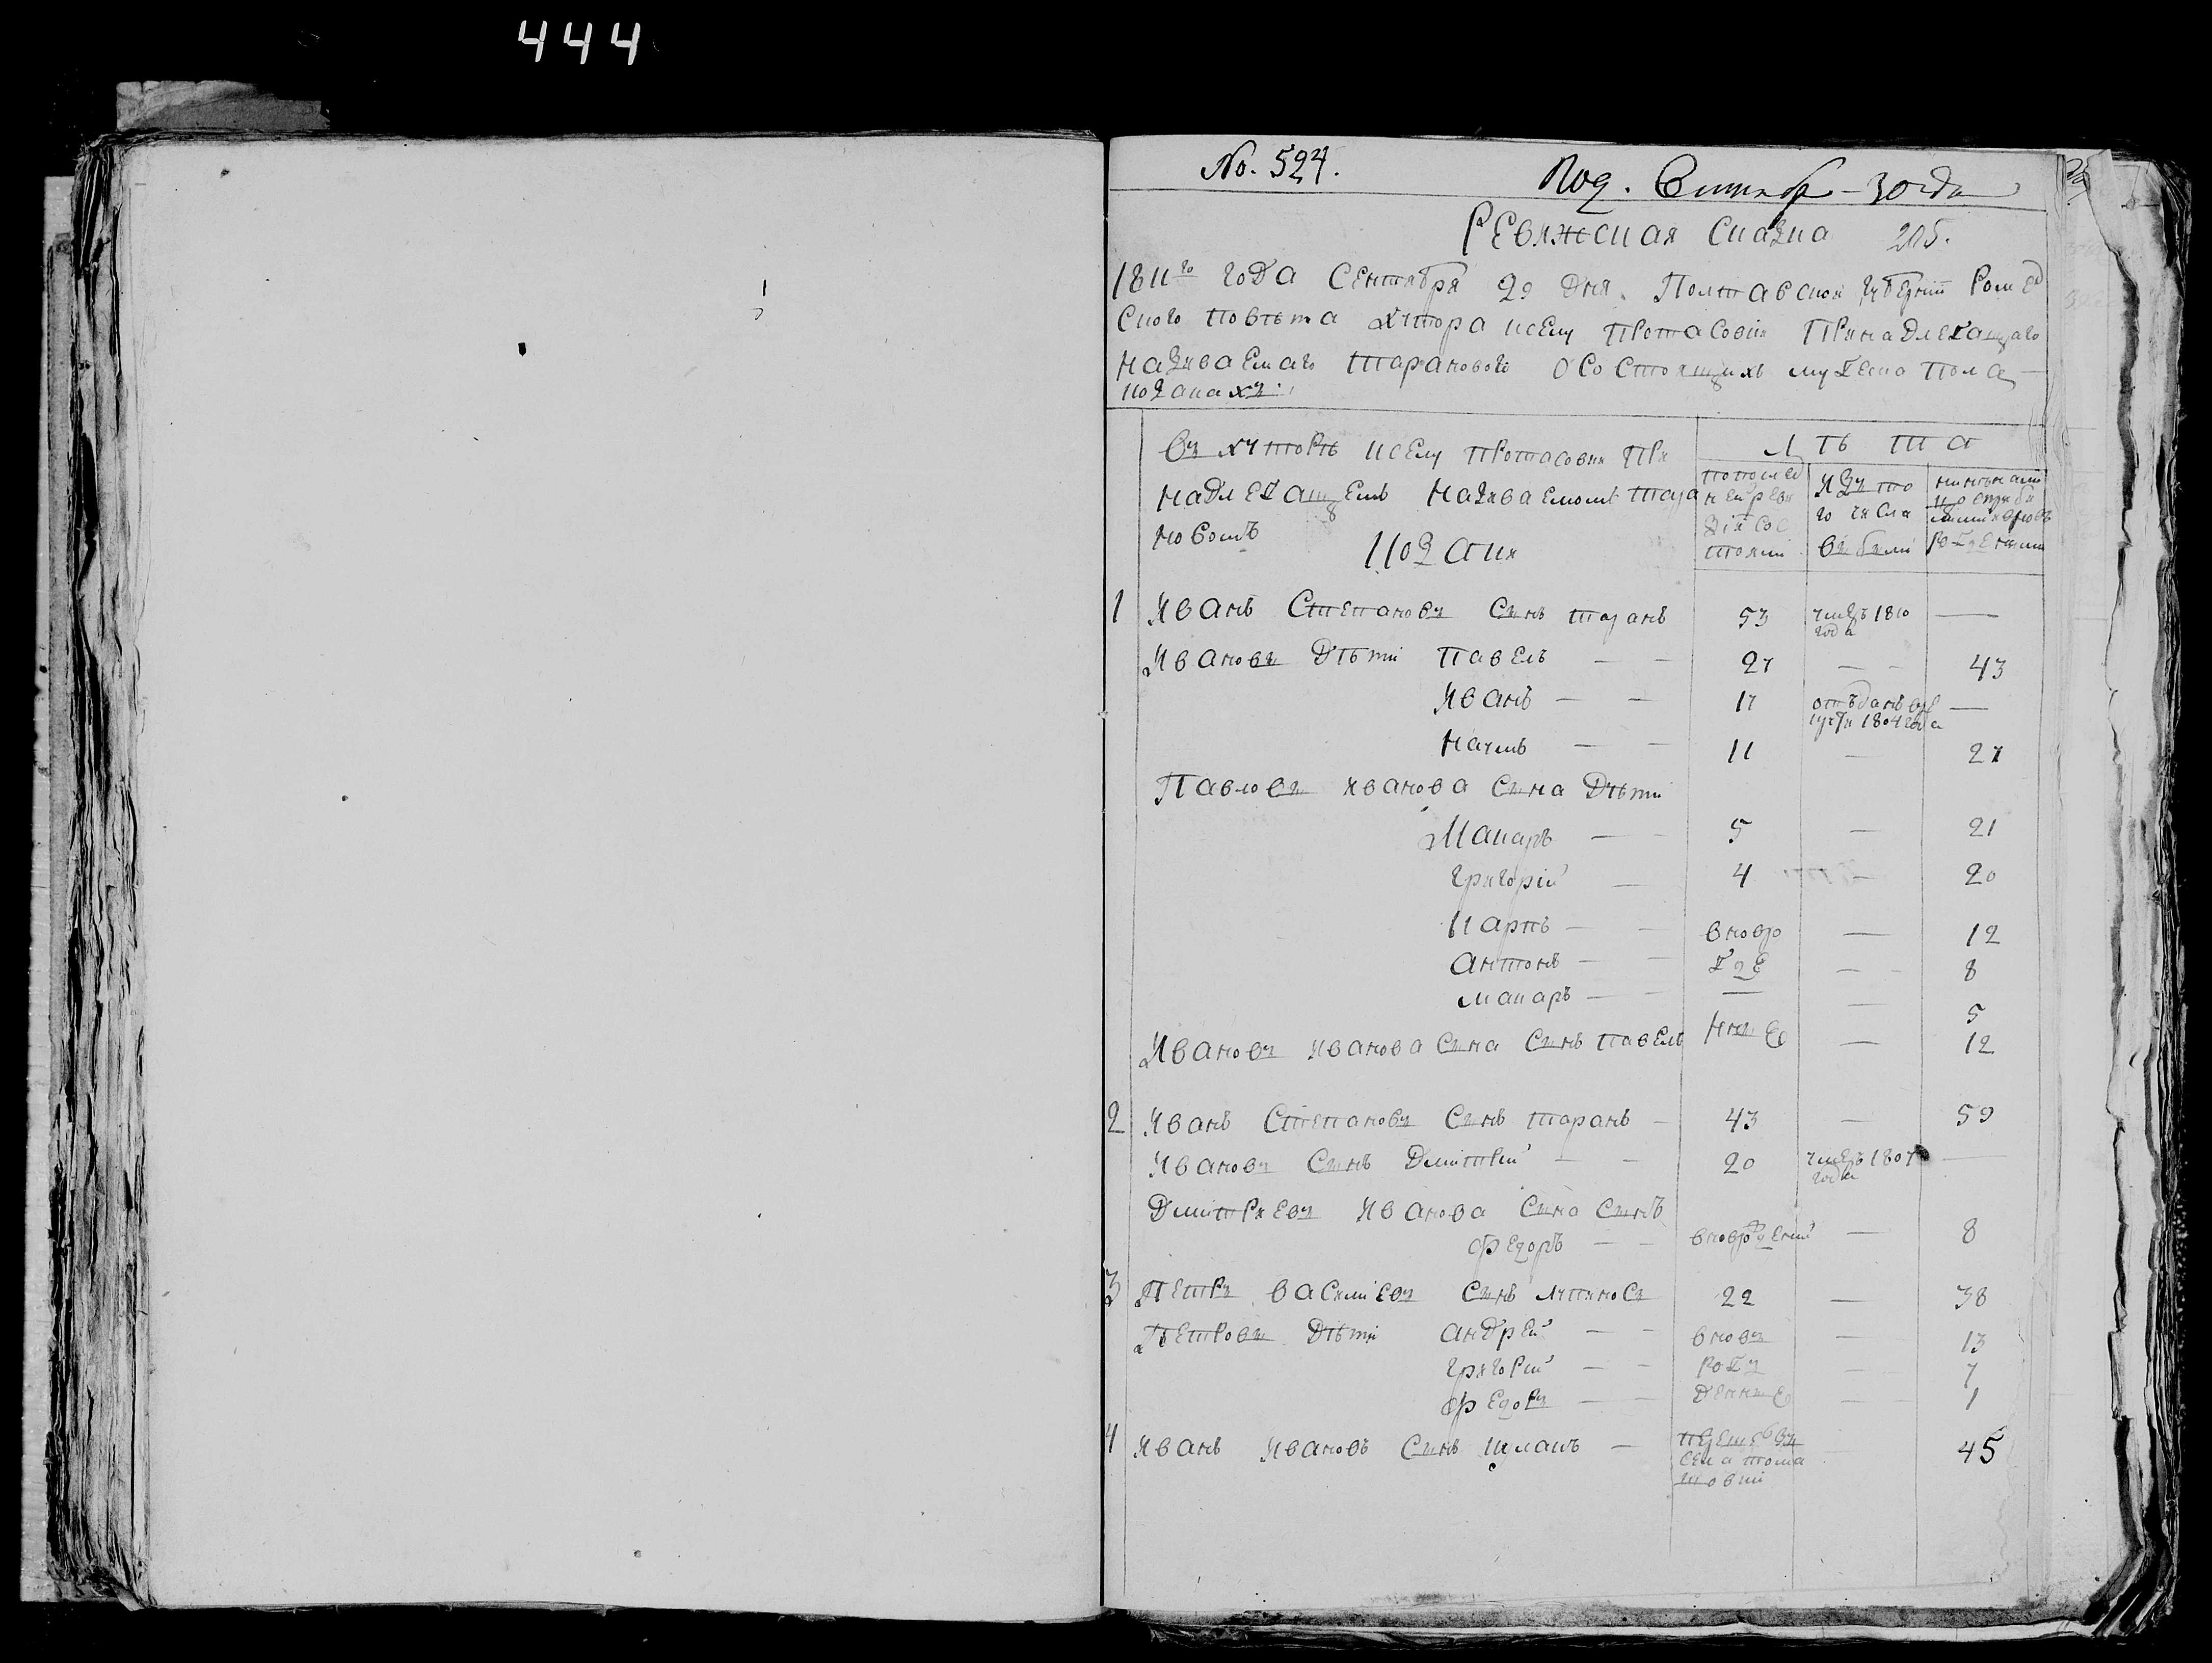 444
No. 524.
Под. Сентябр 30 дня
Ревижская сказка 205.
1811го года сентября 29 дня. Полтавской губернии Ромен
ского повѣта хутора к селу Протасовки принадлежащаго
називаемаго Таранового о состоящихъ мужеска пола
козакахъ:
Въ хуторѣ к селу Протасовки при
надлежащемъ називаемомъ Тара
новомъ
Козаки
Лѣта
по послед
ней реви
зіи сос
тояли
Изъ то
го числа
выбыли
1 Иванъ Степановъ сынъ Таранъ 53 умеръ 1810 года —
Ивановы дѣти Павелъ — — 27 — — 43
Иванъ — — 17 отъданъ в ре
крути 1804 года —
Наумъ — — 11 — 27
Павловы Иванова сына дѣти
Макаръ — — 5 — 21
Григорій — 4 — 20
Карпъ — — вновь ро 12
Антонъ — — жде — — 8
Макаръ — — — — 5
Ивановъ Иванова сына сынъ Павелъ нные — 12
2 Иванъ Степановъ сынъ Таранъ — 43 — 59
Ивановъ сынъ Дмитрий — — 20 умеръ 1807 года —
Дмитриевъ Иванова сына сынъ
Федоръ — — вноврожденій — 8
3 Петръ Василиевъ сынъ Лупиносъ 22 — 38
Петровы дѣти Андрей — — вновъ — 13
Григорий — — рожъ — 7
Федоръ — — денные — 1
4 Иванъ Ивановъ сынъ — 45